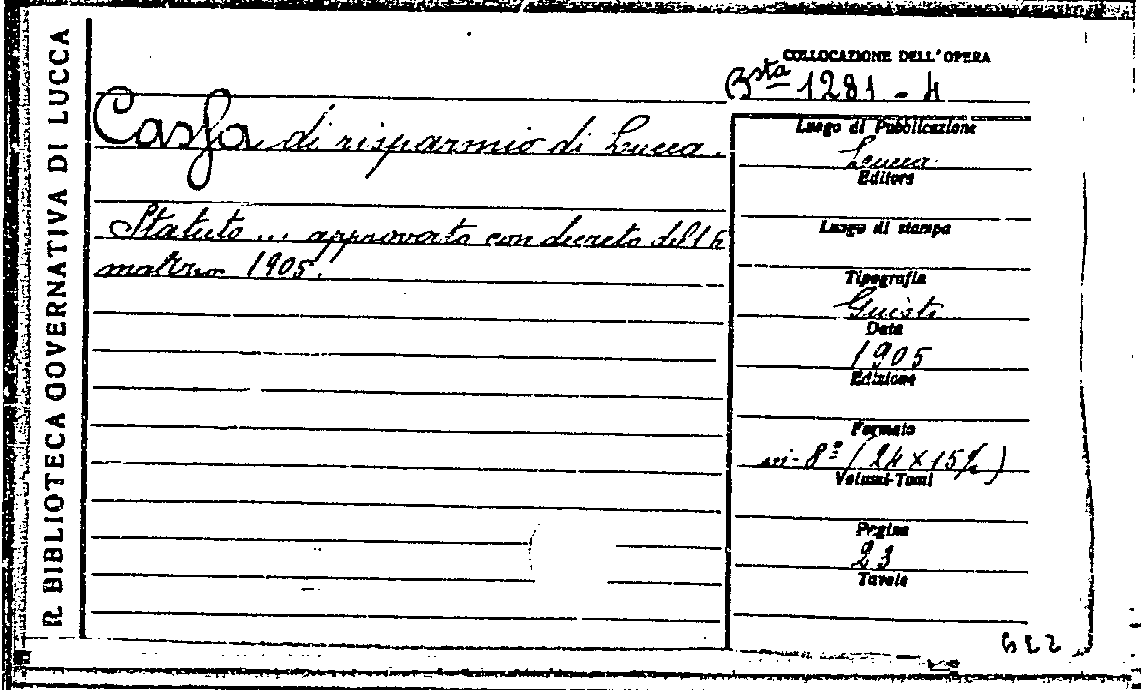 R. BIBLIOTECA GOVERNATIVA DI LUCCA
COLLOCAZIONE DELL'OPERA
Bsta 1281 - 4
Cassa di risparmio di Lucca.
Statuto ... approvato con decreto del 14
marzo 1905.
Luogo di Pubblicazione
Lucca
Editore
Luogo di stampa
Tipografia
Giusti
Data
1905
Edizione
Formato
in-8º (24 × 15½)
Volumi-Tomi
Pagine
23
Tavole